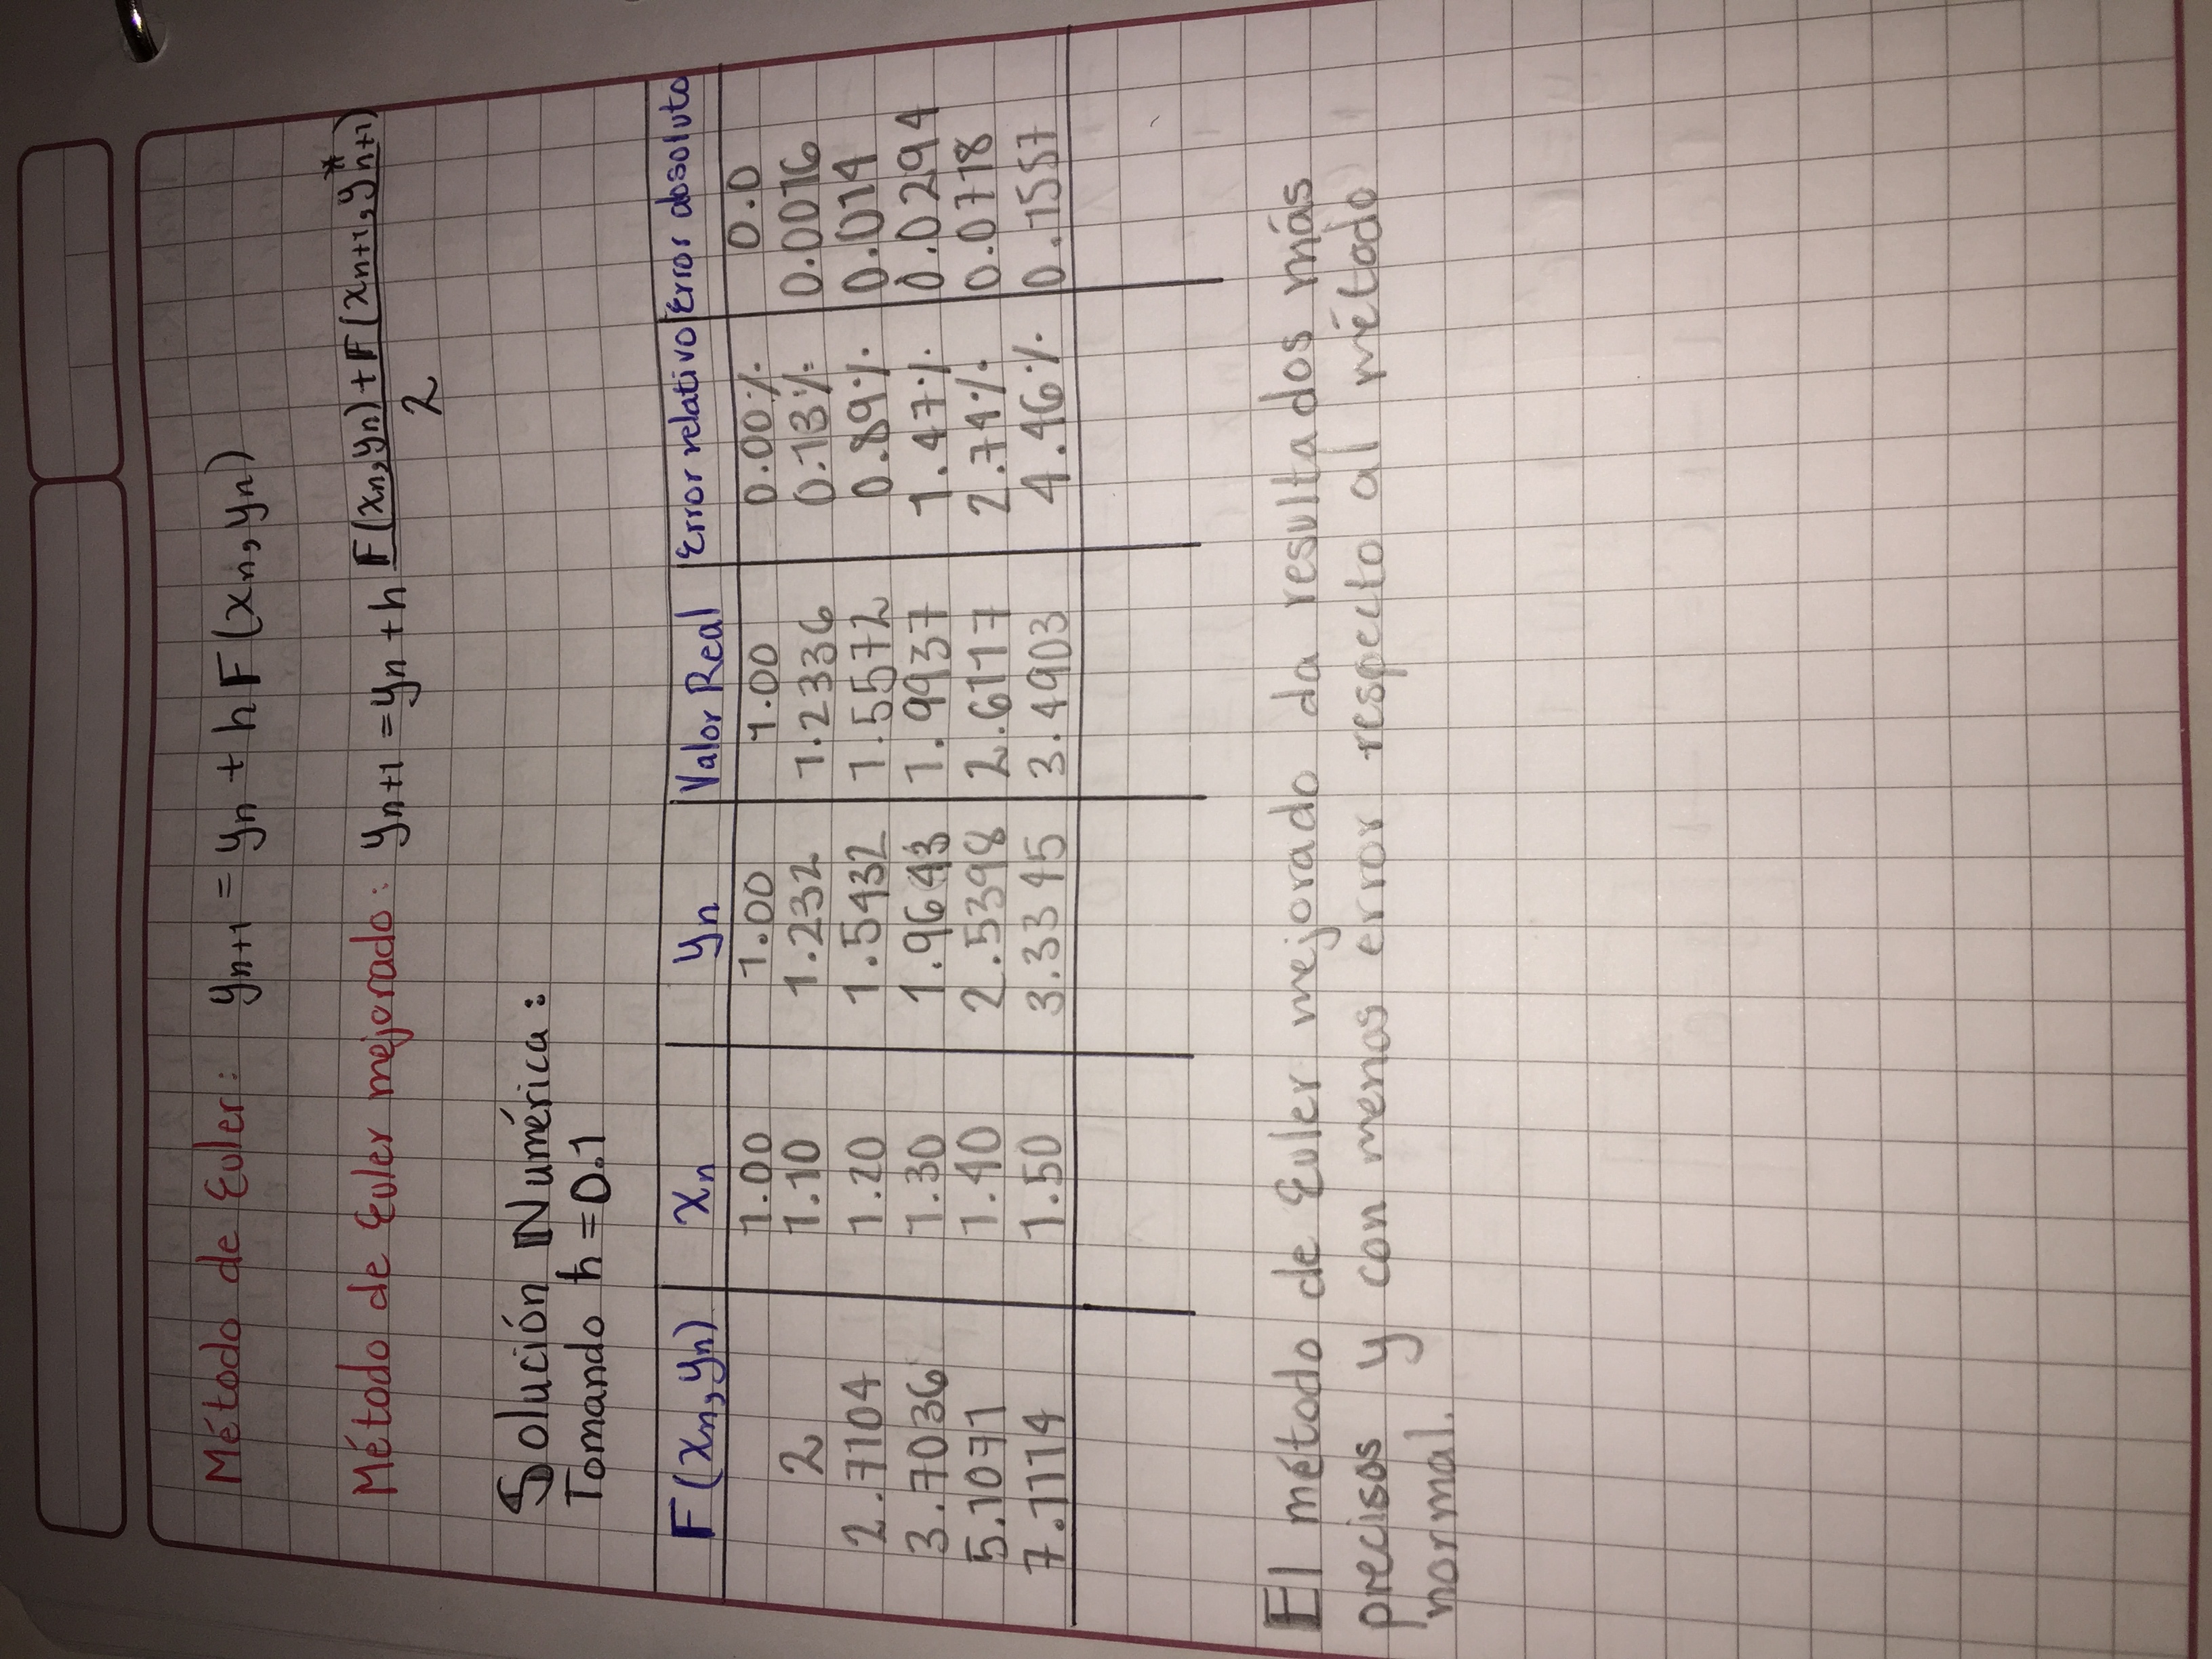 Método de Euler: yn+1 = yn + h F(xn, yn)
Método de Euler mejorado: yn+1 = yn + h F(xn, yn) + F(xn+1, y*n+1) / 2
Solución Numérica:
Tomando h = 0.1
F(xn, yn) xn yn Valor Real Error relativo Error absoluto
1.00 1.00 1.00 0.00% 0.0
2 1.10 1.232 1.2336 0.13% 0.0016
2.7104 1.20 1.5432 1.5572 0.89% 0.014
3.7036 1.30 1.9643 1.9937 1.47% 0.0294
5.1071 1.40 2.5398 2.6117 2.74% 0.0718
7.1114 1.50 3.3345 3.4903 4.46% 0.1557
El método de Euler mejorado da resultados más
precisos y con menos error respecto al método
normal.